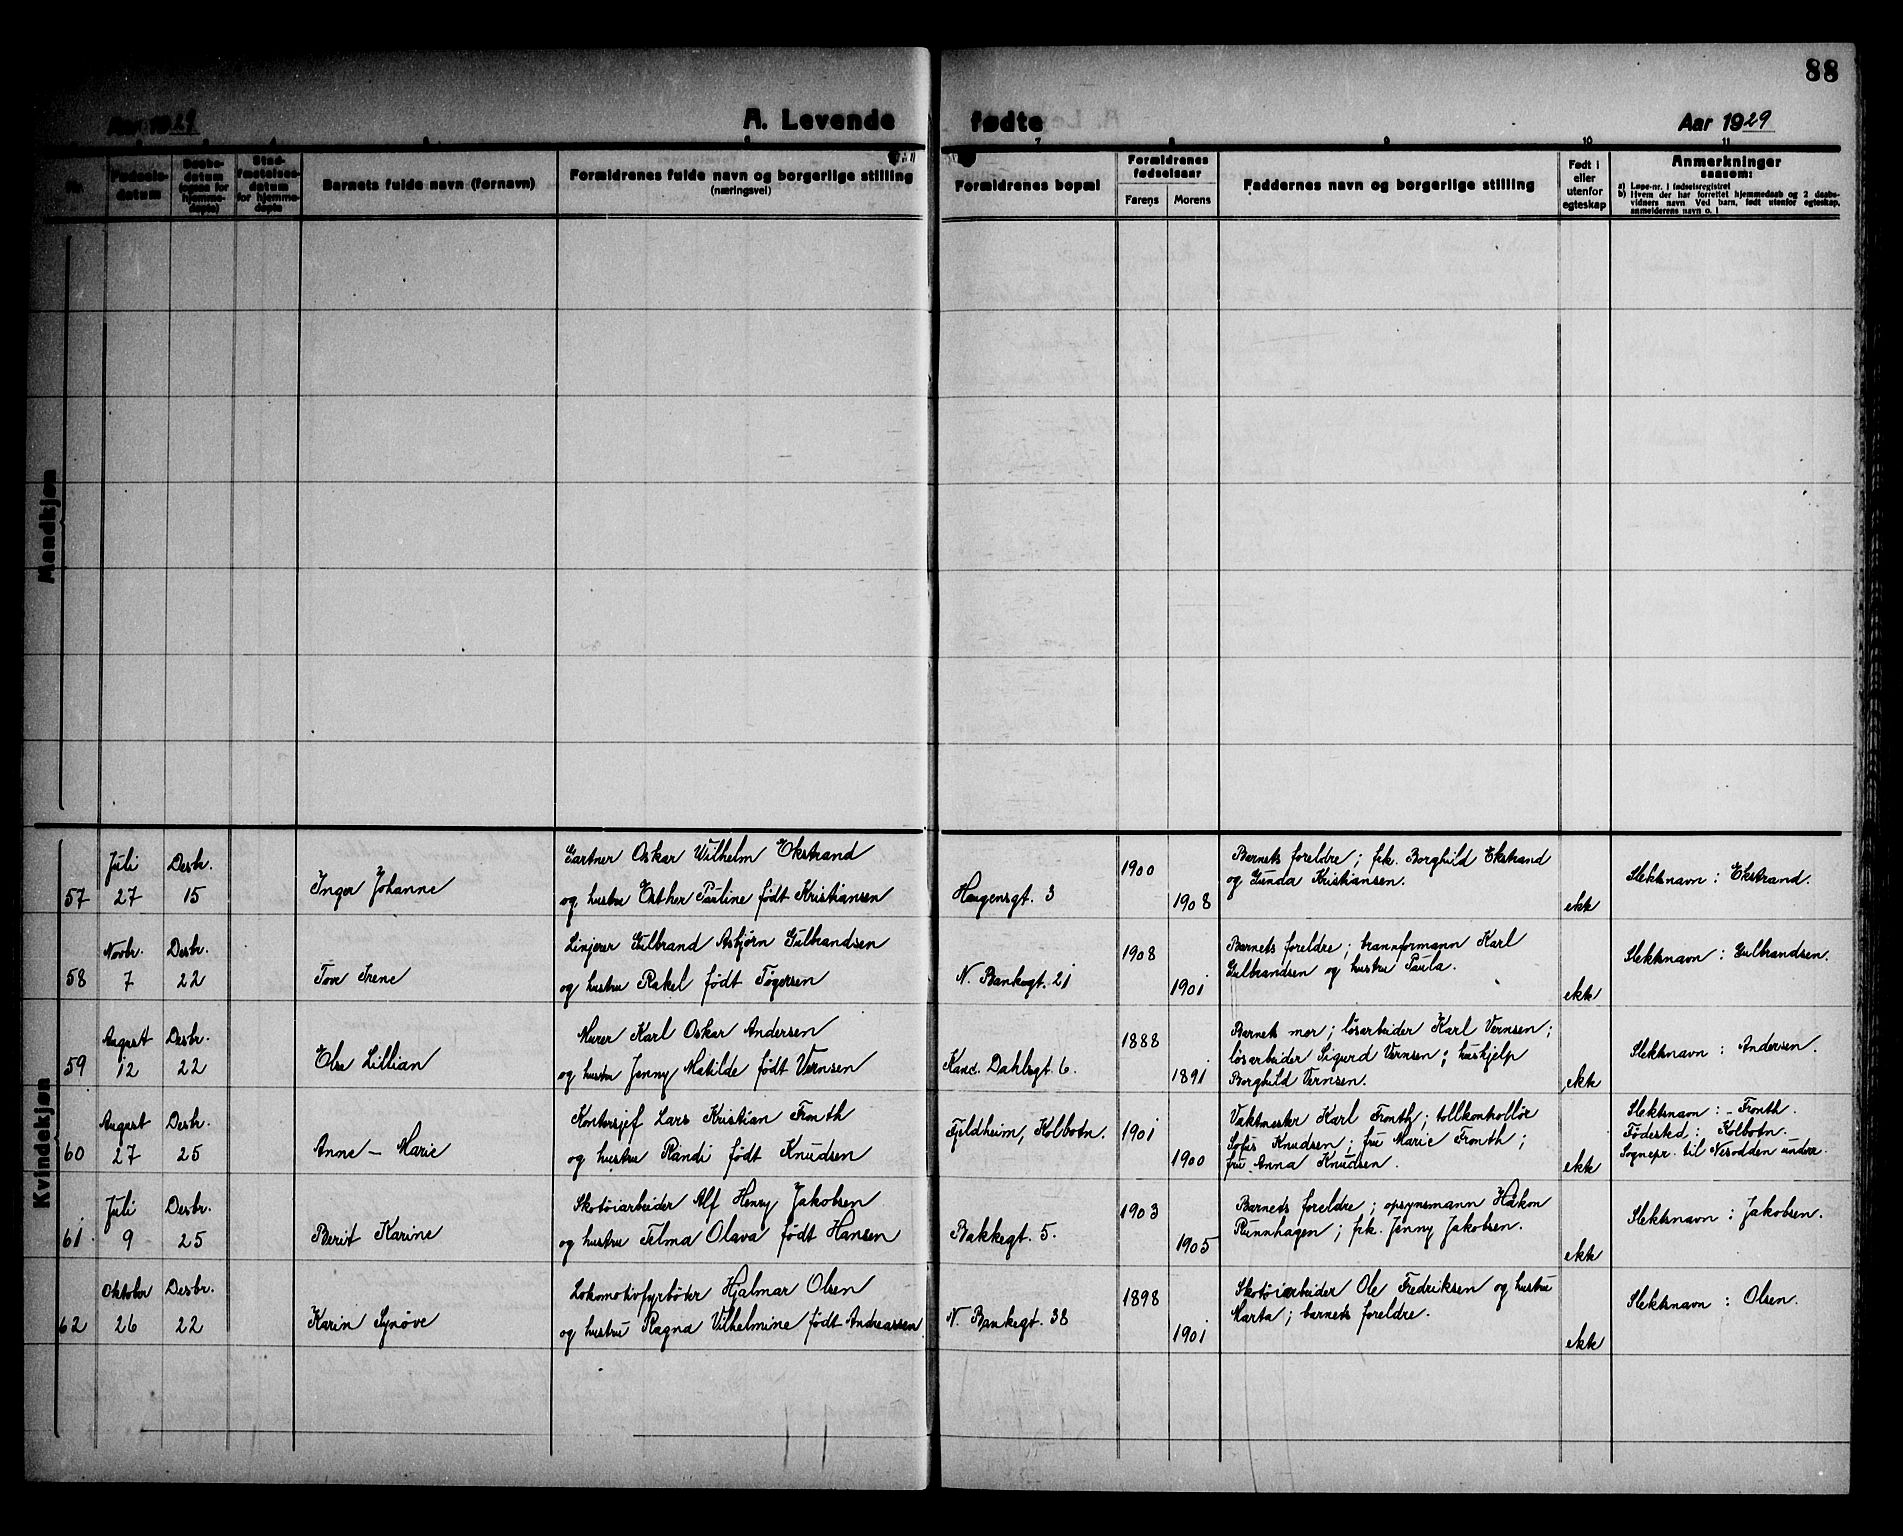 88
Aar 1929
A. Levende fødte
Aar 1929
Nr.
Fødsels-
datum
Daabs-
datum
(ogsaa for
hjemme-
døpte)
Stad-
fæstelses-
datum
for hjemme-
døpte
Barnets fulde navn (fornavn)
Forældrenes fulde navn og borgerlige stilling
(næringsvei)
7
Forældrenes bopæl
8
Forældrenes
fødselsaar
Farens
Morens
9
Faddernes navn og borgerlige stilling
10
Født i
eller
utenfor
egteskap
11
Anmerkninger
saasom:
a) Løpe-nr. i fødselsregistret
b) Hvem der har forrettet hjemmedaab og 2 daabs-
vidners navn Ved barn, født utenfor egteskap,
anmelderens navn o. l
Mandkjøn
Kvindekjøn
57
Juli
27
Desbr.
15
Inger Johanne
Gartner Oskar Wilhelm Ekstrand
og hustru Esther Pauline født Kristiansen
Haugensgt. 3
1900
1908
Barnets foreldre; frk. Borghild Ekstrand
og Gunda Kristiansen.
ekte
Slektsnavn : Ekstrand.
58
Novbr.
7
Desbr.
22
Tove Irene
Linjerer Gulbrand Asbjørn Gulbrandsen
og hustru Rakel født Tøgersen
N. Bankegt. 21
1908
1901
Barnets foreldre; brannformann Karl
Gulbrandsen og hustru Paula.
ekte
Slektsnavn : Gulbrandsen.
59
August
12
Desbr.
22
Else Lillian
Murer Karl Oskar Andersen
og hustru Jenny Matilde født Vernsen
Kanc. Dahlsgt 6.
1888
1891
Barnets mor; løsarbeider Karl Vernsen;
løsarbeider Sigurd Vernsen; hushjelp
Borghild Vernsen.
ekte
Slektsnavn : Andersen.
60
August
27
Desbr.
25
Anne - Marie
Kontorsjef Lars Kristian Tronth
og hustru Randi født Knudsen
Fjeldheim, Kolbotn.
1901
1900
Vaktmester Karl Tronth; tollkontrollør
Sofus Knudsen; fru Marie Tronth;
fru Anna Knudsen.
ekte
Slektsnavn : - Tronth.
Fødested : Kolbotn.
Sognepr. til Nesodden underr.
61
Juli
9
Desbr.
25
Berit Karine
Skotøiarbeider Alf Henry Jakobsen
og hustru Telma Olava født Hansen
Bakkegt. 5.
1903
1905
Barnets foreldre; opsynsmann Håkon
Runnhagen; frk. Jenny Jakobsen.
ekte
Slektsnavn : Jakobsen.
62
Oktober
26
Desbr.
22
Karin Synøve
Lokomotivfyrbøter Hjalmar Olsen
og hustru Ragna Vilhelmine født Andreassen
N. Bankegt. 38
1898
1901
Skotøiarbeider Ole Fredriksen og hustru
Marta; barnets foreldre.
ekte
Slektsnavn : Olsen.